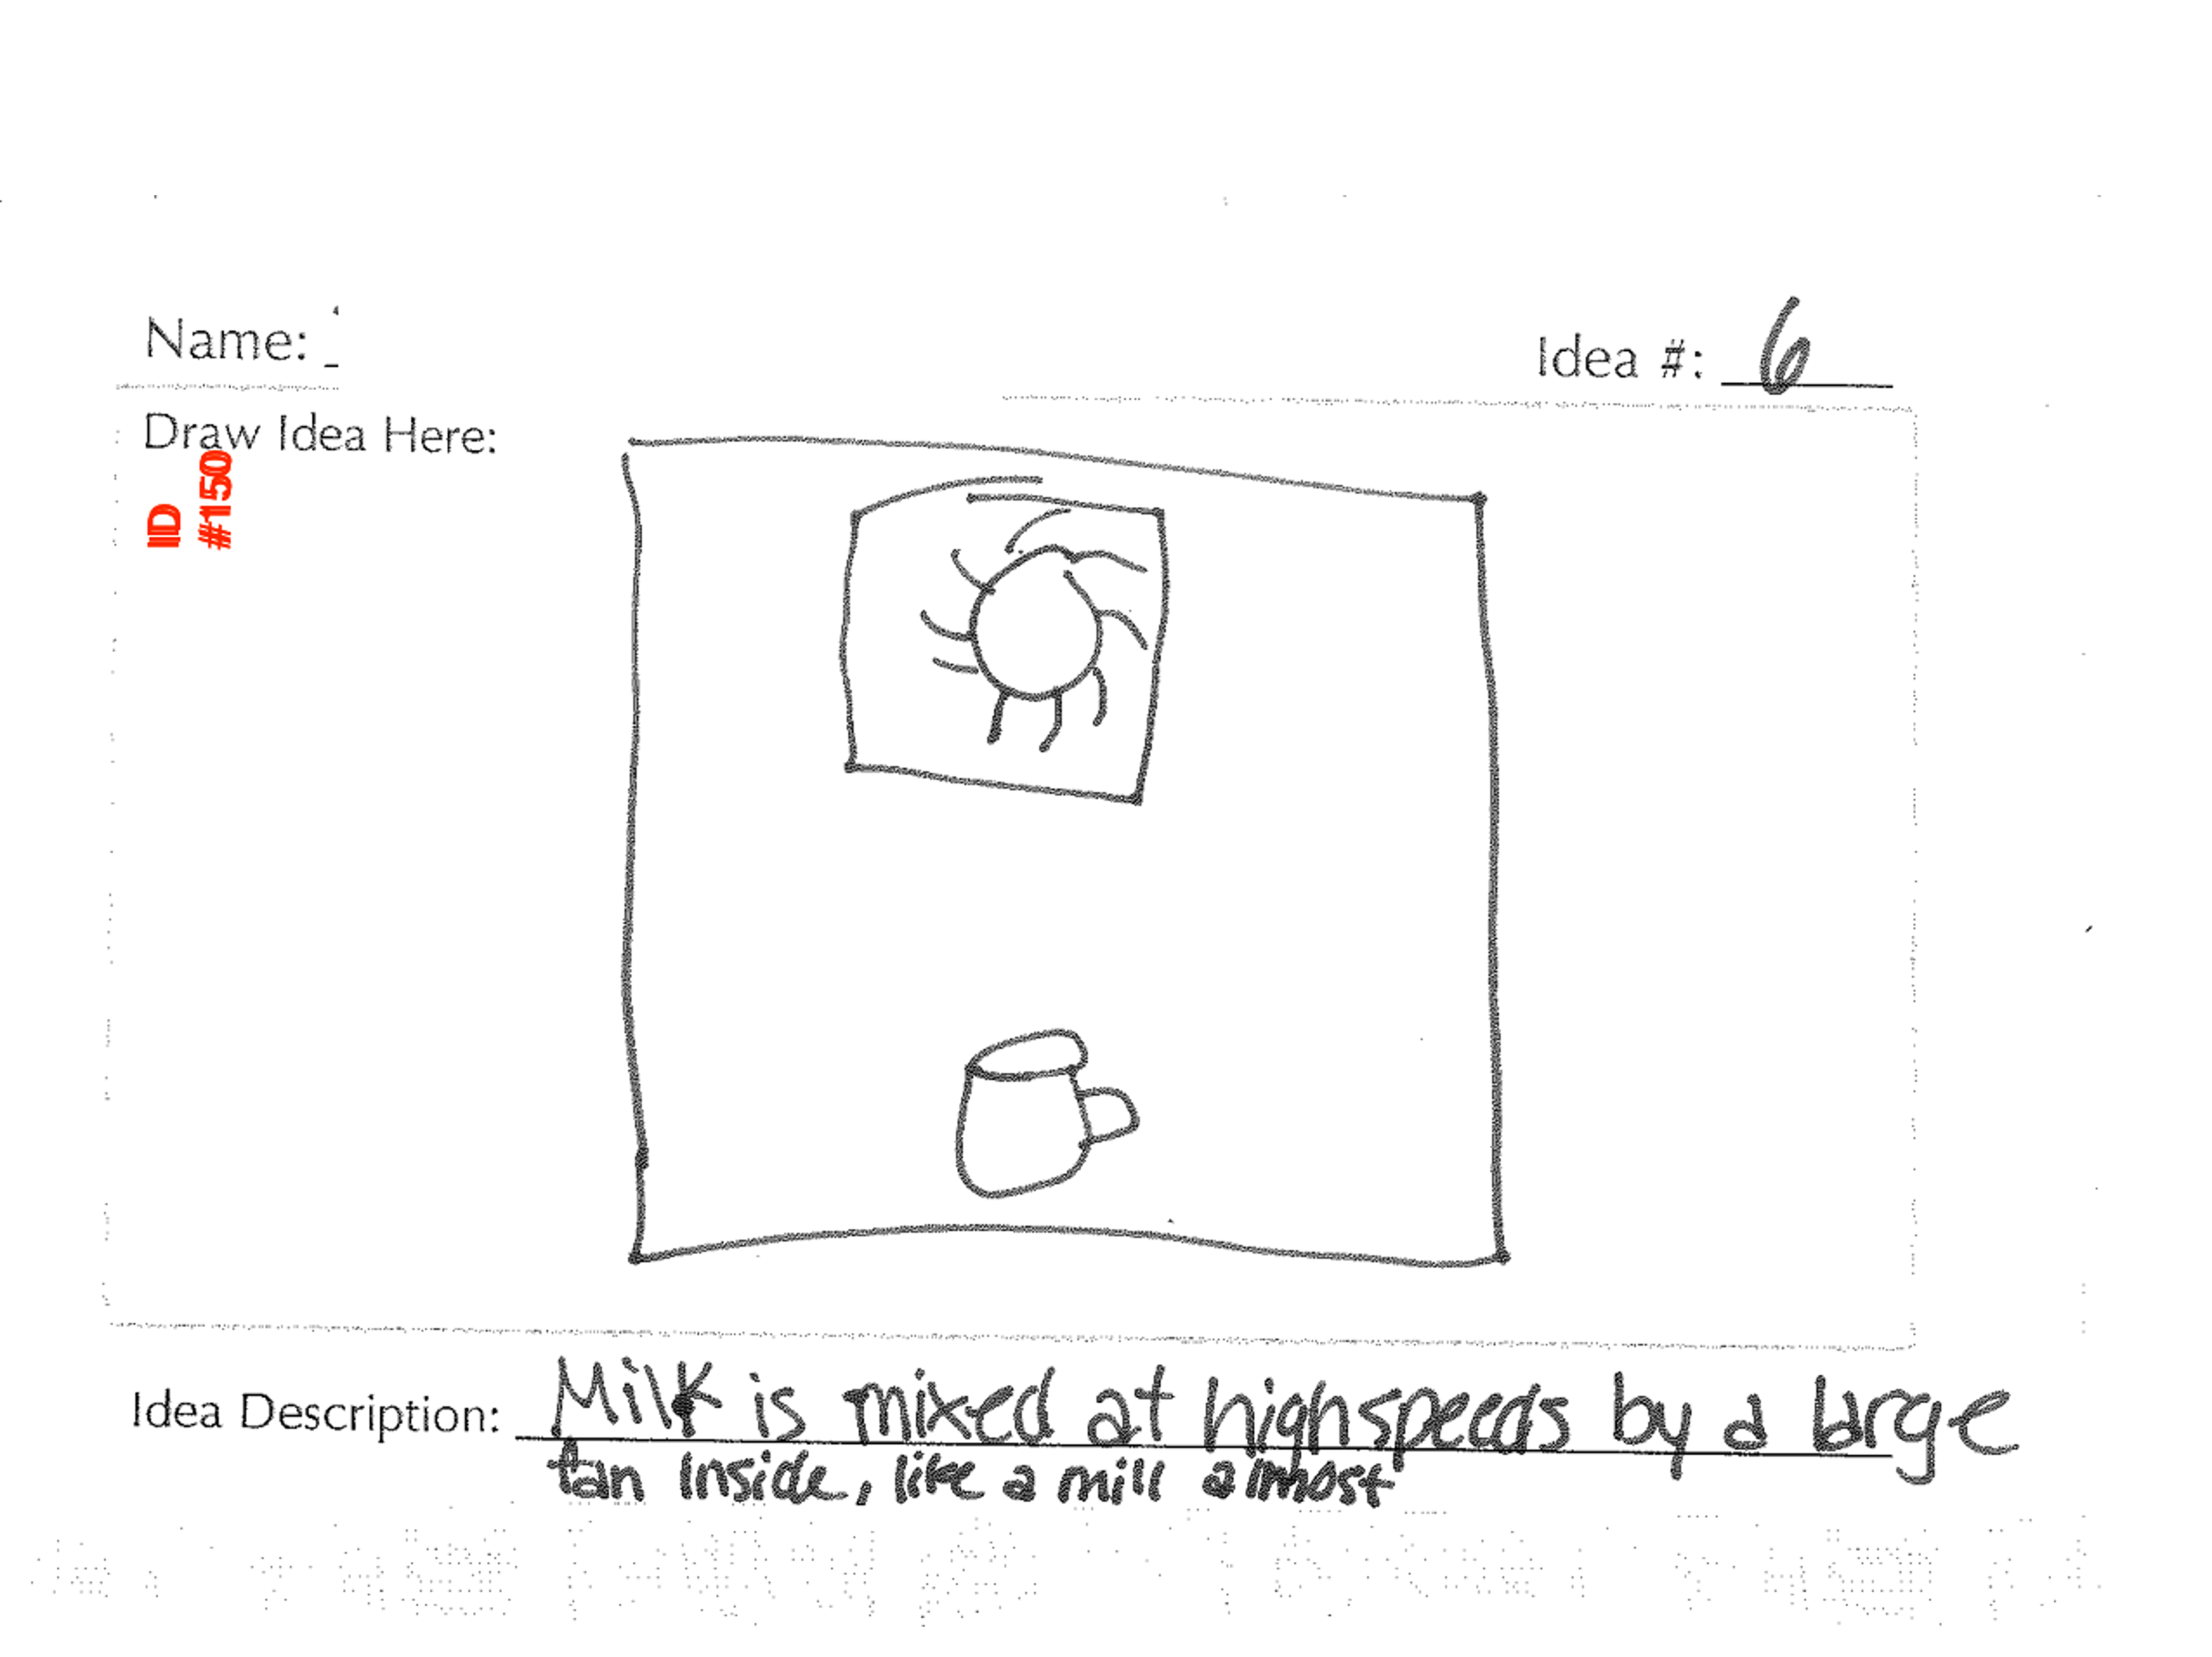 Name:
Idea #: 6
Draw Idea Here:
IID
#150
Idea Description: Milk is mixed at highspeeds by a large
fan inside, like a mill almost